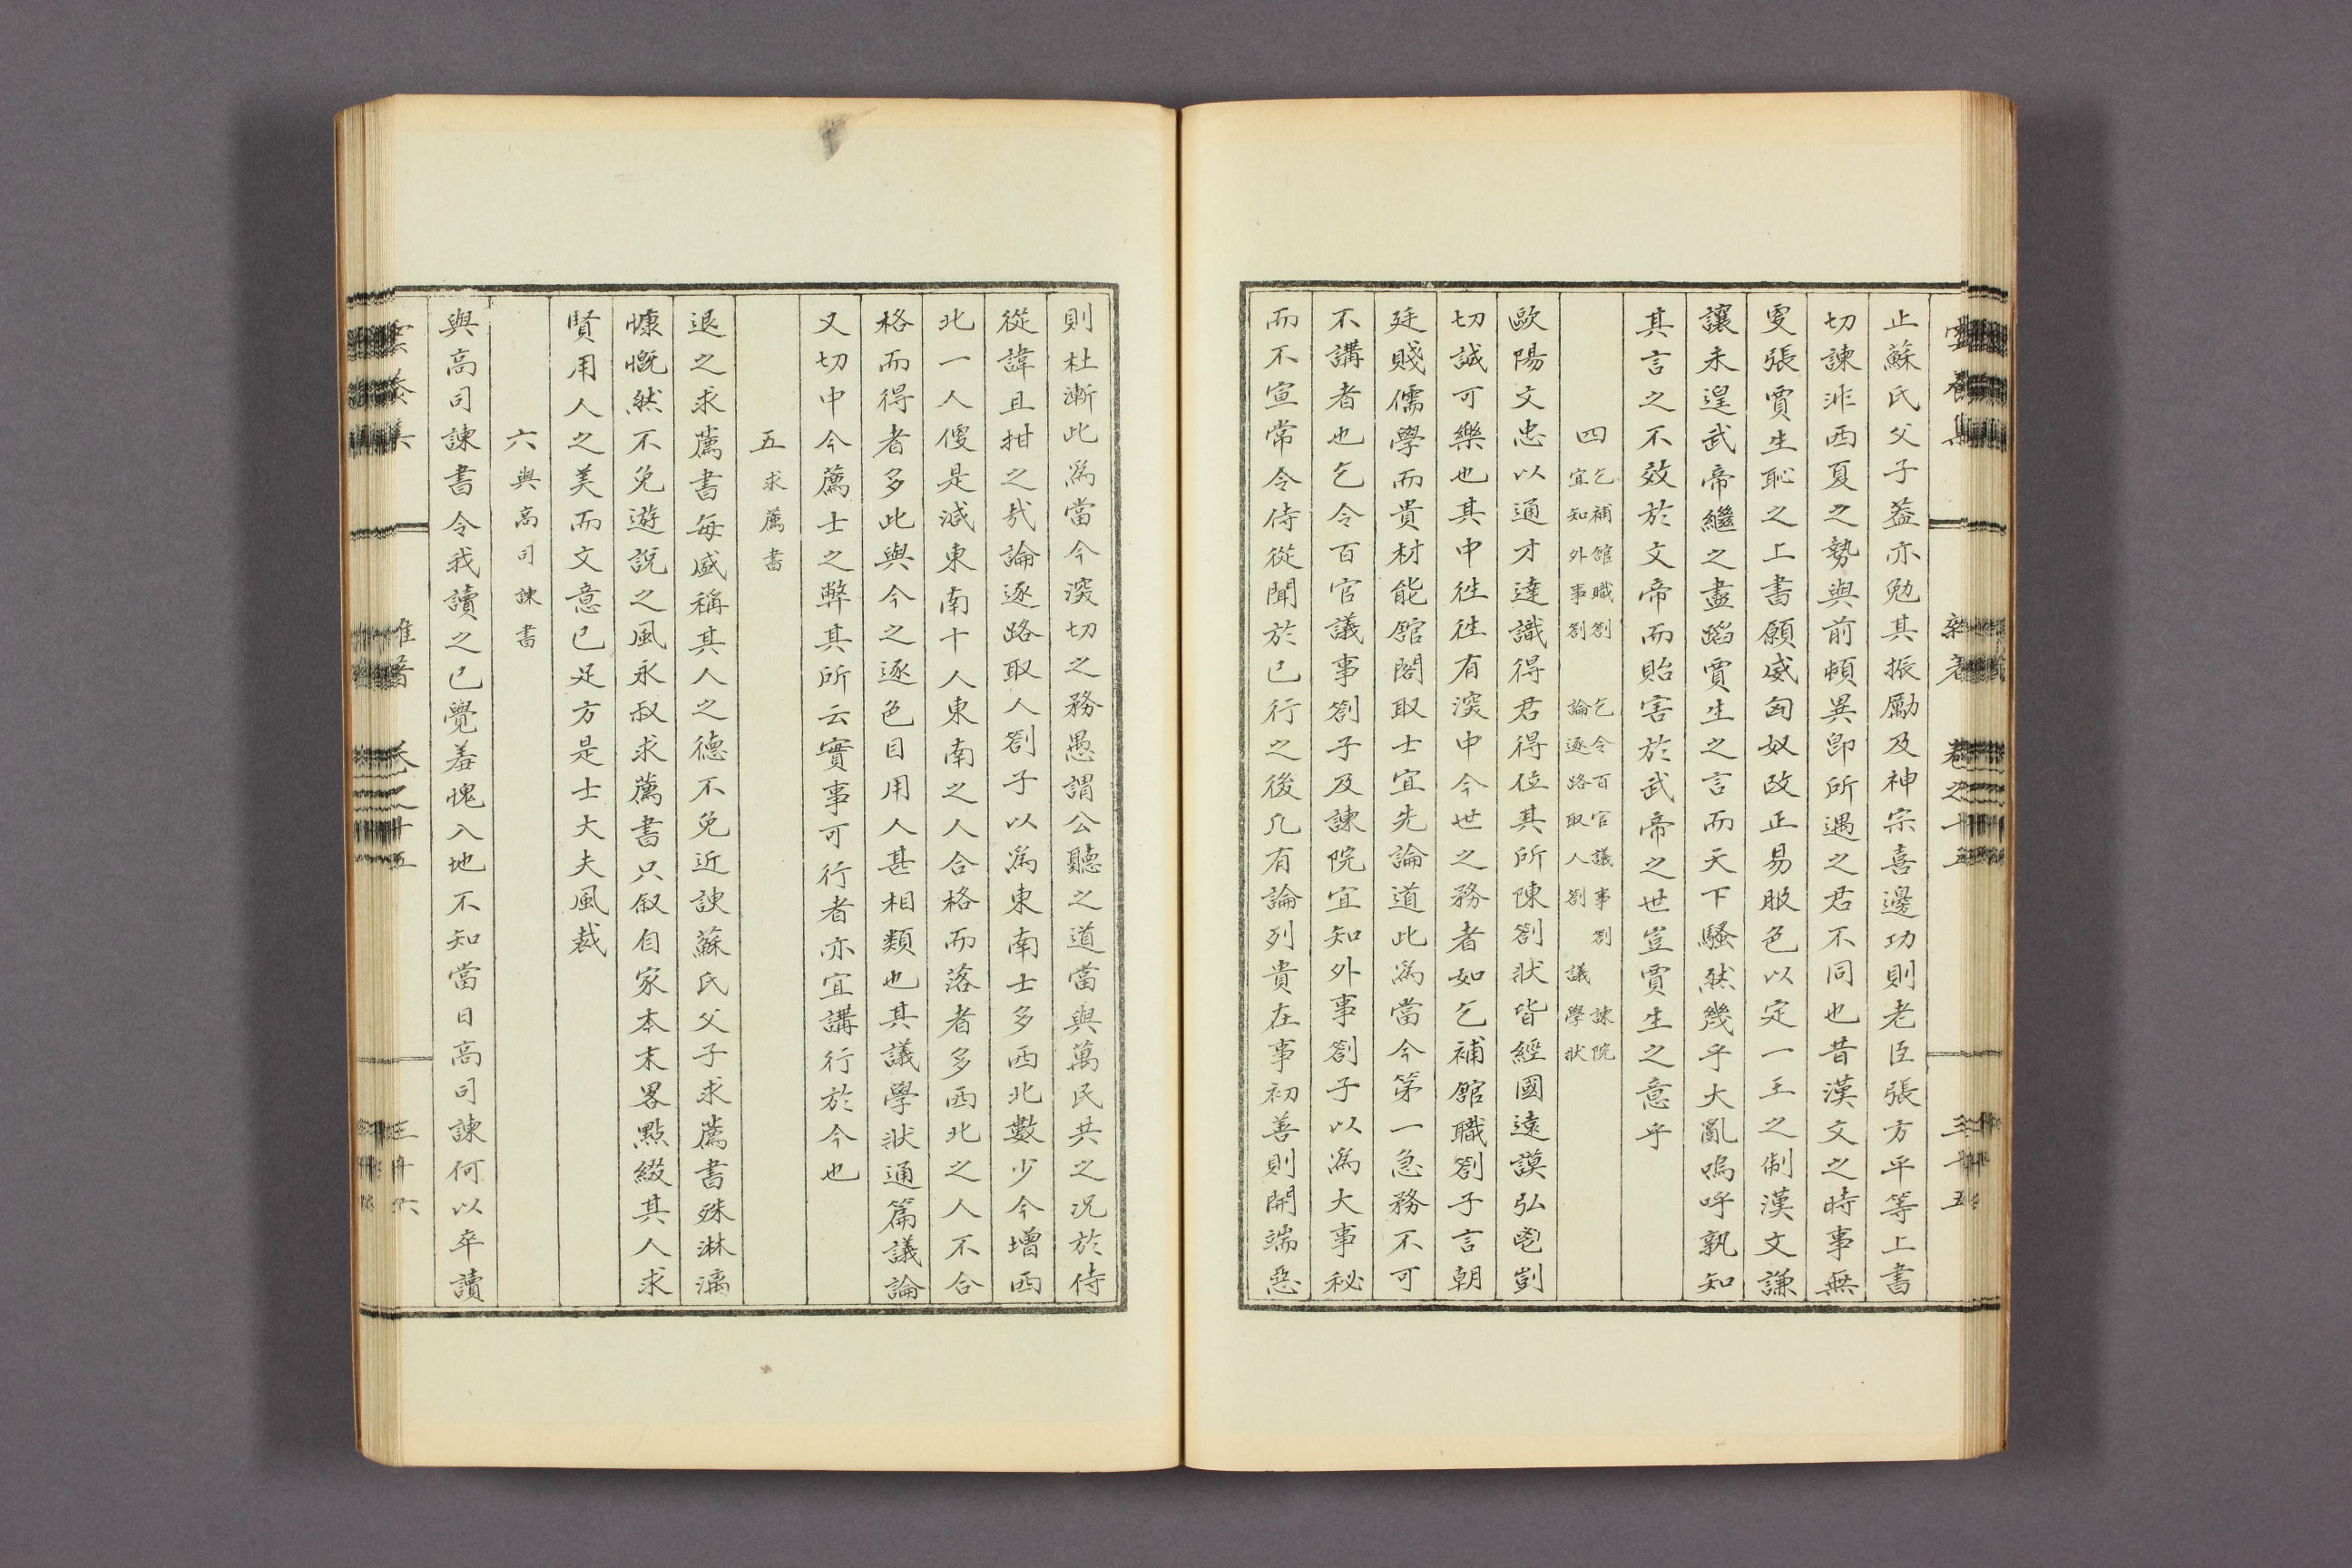 止蘇氏父子葢亦勉其振勵及神宗喜邊功則老臣張方平等上書
切諫非西夏之勢與前頓異卽所遇之君不同也昔漢文之時事無
叓張賈生恥之上書願威匈奴改正易服色以定一王之制漢文謙
讓未遑武帝繼之盡蹈賈生之言而天下騷然幾乎大亂嗚呼孰知
其言之不效於文帝而貽害於武帝之世豈賈生之意乎
四 乞補館職劄 乞令百官議事劄 諫院
宜知外事劄 論逐路取人劄 議學狀
歐陽文忠以通才達識得君得位其所陳劄狀皆經國遠謨弘鬯剴
切誠可樂也其中徃徃有深中今世之務者如乞補館職劄子言朝
廷賤儒學而貴材能館閣取士宜先論道此爲當今第一急務不可
不講者也乞令百官議事劄子及諫院宜知外事劄子以爲大事秘
而不宣常令侍從聞於已行之後凢有論列貴在事初善則開端惡
雜著 卷之十五 三十五
則杜漸此爲當今深切之務愚謂公聽之道當與萬民共之况於侍
從諱且拑之㢤論逐路取人劄子以爲東南士多西北數少今增西
北一人便是減東南十人東南之人合格而落者多西北之人不合
格而得者多此與今之逐色目用人甚相類也其議學狀通篇議論
又切中今薦士之弊其所云實事可行者亦宜講行於今也
五 求薦書
退之求薦書每盛稱其人之德不免近諛蘇氏父子求薦書殊淋漓
慷慨然不免遊說之風永叔求薦書只叙自家本末畧點綴其人求
賢用人之美而文意已足方是士大夫風裁
六 與高司諫書
與高司諫書令我讀之已覺羞愧入地不知當日高司諫何以卒讀
三十六